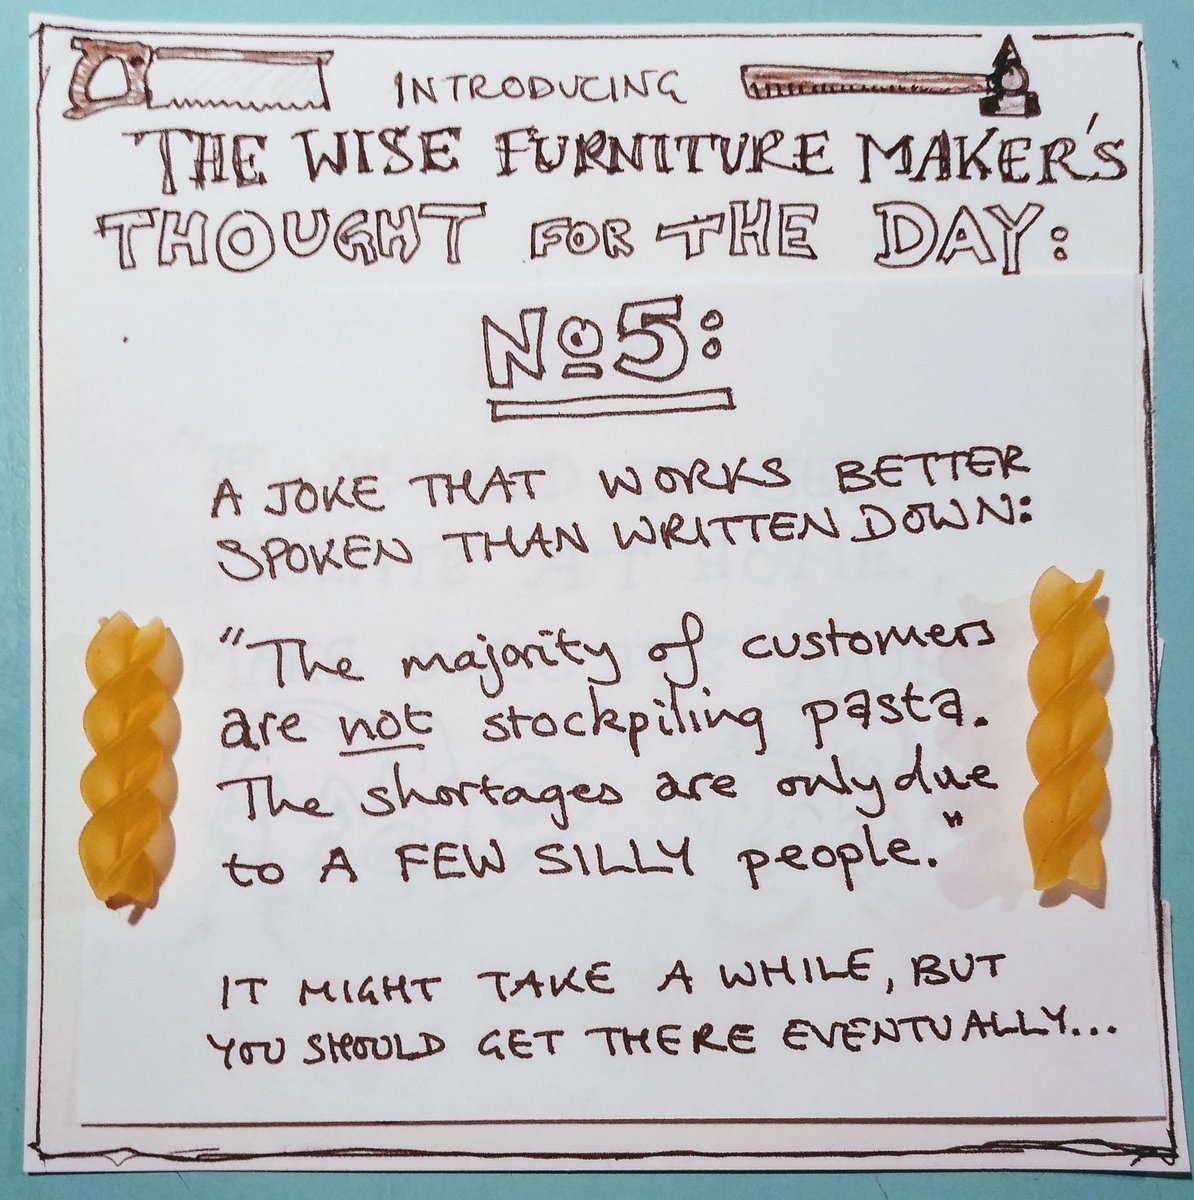 INTRODUCING
THE WISE FURNITURE MAKER'S
THOUGHT FOR THE DAY:
No5:
A JOKE THAT WORKS BETTER
SPOKEN THAN WRITTEN DOWN:
"The majority of customers
are not stockpiling pasta.
The shortages are only due
to A FEW SILLY people."
IT MIGHT TAKE A WHILE, BUT
YOU SHOULD GET THERE EVENTUALLY...